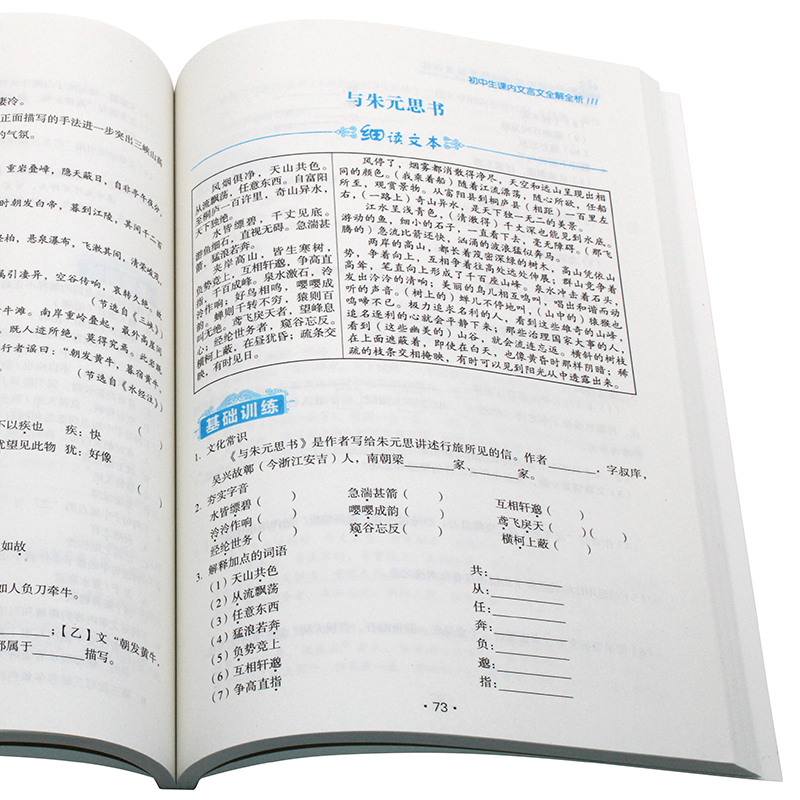 凄冷。
正面描写的手法进一步突出三峡山高
的气氛。
重岩叠嶂，隐天蔽日，自非亭午夜分，
时朝发白帝，暮到江陵，其间千二百
怪柏，悬泉瀑布，飞漱其间，清荣峻茂，
属引凄异，空谷传响，哀转久绝，故
（节选自《三峡》）
牛滩。南岸重岭叠起，最外高崖间
，既人迹所绝，莫得究焉。此岩既
行者谣曰：“朝发黄牛，暮宿黄牛，
（节选自《水经注》）
不以疾也 疾：快 （ ）
犹望见此物 犹：好像 （ ）
（ ）
（ ）
如故
如人负刀牵牛。
；【乙】文“朝发黄牛，
都属于______描写。
初中生课内文言文全解全析
与朱元思书
细读文本
风烟俱净，天山共色。
从流飘荡，任意东西。自富阳
至桐庐一百许里，奇山异水，
天下独绝。
水皆缥碧，千丈见底。
游鱼细石，直视无碍。急湍甚
箭，猛浪若奔。
夹岸高山，皆生寒树，
负势竞上，互相轩邈，争高直
指，千百成峰。泉水激石，泠
泠作响；好鸟相鸣，嘤嘤成
韵。蝉则千转不穷，猿则百
叫无绝。鸢飞戾天者，望峰息
心；经纶世务者，窥谷忘反。
横柯上蔽，在昼犹昏；疏条交
映，有时见日。
风停了，烟雾都消散得净尽，天空和远山呈现出相
同的颜色。（我乘着船）随着江流漂荡，随心所欲，任船
所至，观赏景物。从富阳县到桐庐县（相距）一百里左
右，（一路上）奇山异水，是天下独一无二的美景。
江水呈浅青色，（清澈得）千丈深也能见到水底。
游动的鱼，细小的石子，一直看下去，毫无障碍。（那飞
腾的）急流比箭还快，汹涌的波浪猛似奔马。
两岸的高山，都长着茂密深绿的树木，高山凭依山
势，争着向上，互相争着往高处远处伸展；群山竞争着
高耸，笔直向上形成了千百座山峰。泉水冲击着石头，
发出泠泠的清响；美丽的鸟儿相互鸣叫，唱出和谐而动
听的声音。（树上的）蝉儿不停地叫，（山中的）猿猴也
鸣啼不已。极力追求名利的人，看到这些雄奇的山峰，
追名逐利的心就会平静下来；那些治理国家大事的人，
看到（这些幽美的）山谷，就会流连忘返。横斜的树枝
在上面遮蔽着，即使在白天，也像黄昏时那样阴暗；稀
疏的枝条交相掩映，有时可以见到阳光从中透露出来。
基础训练
1. 文化常识
《与朱元思书》是作者写给朱元思讲述行旅所见的信。作者______，字叔庠，
吴兴故鄣（今浙江安吉）人，南朝梁______家、______家。
2. 夯实字音
水皆缥碧（ ） 急湍甚箭（ ） 互相轩邈（ ）
泠泠作响（ ） 嘤嘤成韵（ ） 鸢飞戾天（ ）（ ）
经纶世务（ ） 窥谷忘反（ ） 横柯上蔽（ ）
3. 解释加点的词语
（1）天山共色 共：______
（2）从流飘荡 从：______
（3）任意东西 任：______
（4）猛浪若奔 奔：______
（5）负势竞上 负：______
（6）互相轩邈 邈：______
（7）争高直指 指：______
· 73 ·